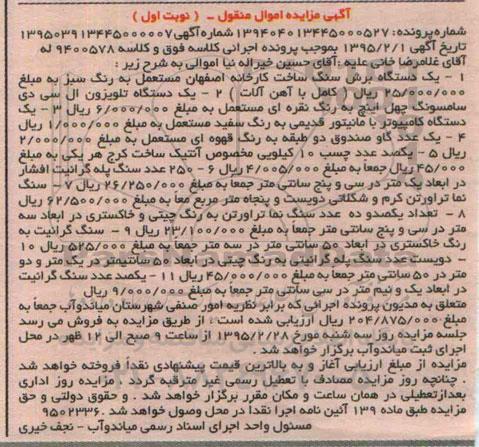 آگهی مزایده اموال منقول - ( نوبت اول )
شماره پرونده: ۱۳۹۴۰۴۰۱۳۴۴۵۰۰۰۵۲۷ شماره آگهی ۱۳۹۵۰۳۹۱۳۴۴۵۰۰۰۰۰۷
تاریخ آگهی ۱۳۹۵/۲/۱ بموجب پرونده اجرائی کلاسه فوق و کلاسه ۹۴۰۰۵۷۸ له
آقای غلامرضا خانی علیه :آقای حسین خیراله نیا اموالی به شرح زیر :
۱ - یک دستگاه برش سنگ ساخت کارخانه اصفهان مستعمل به رنگ سبز به مبلغ
۲۵/۰۰۰/۰۰۰ ریال ( کامل با آهن آلات ) ۲ - یک دستگاه تلویزیون ال سی دی
سامسونگ چهل اینچ به رنگ نقره ای مستعمل به مبلغ ۶/۰۰۰/۰۰۰ ریال ۳ - یک
دستگاه کامپیوتر با مانیتور قدیمی به رنگ سفید مستعمل به مبلغ ۱/۰۰۰/۰۰۰ ریال
۴ - یک عدد گاو صندوق دو طبقه به رنگ قهوه ای مستعمل به مبلغ ۲/۰۰۰/۰۰۰
ریال ۵ - یکصد عدد چسب ۱۰ کیلویی مخصوص آنتیک ساخت کرج هر یکی به مبلغ
۴۵/۰۰۰ ریال جمعاً به مبلغ ۴/۰۰۵/۰۰۰ ریال ۶ - ۲۵۰ عدد سنگ پله گرانیت افشار
در ابعاد یک متر در سی و پنج سانتی متر جمعاً به مبلغ ۲۶/۲۵۰/۰۰۰ ریال ۷ - سنگ
نما تراورتن کرم و شکلاتی دویست و پنجاه متر مربع معاً به مبلغ ۶۲/۵۰۰/۰۰۰ ریال
۸ - تعداد یکصدو ده عدد سنگ نما تراورتن به رنگ چیتی و خاکستری در ابعاد سه
متر در سی و پنج سانتی متر جمعاً به مبلغ ۲۳/۱۰۰/۰۰۰ ریال ۹ - سنگ گرانیت به
رنگ خاکستری در ابعاد ۵۰ سانتی متر در سه متر جمعاً به مبلغ ۵۲۵/۰۰۰ ریال ۱۰
- دویست عدد سنگ پله گرانیتی به رنگ چیتی در ابعاد ۵۰ سانتیمتر در یک متر و دو
متر در ۵۰ سانتی متر جمعاً به مبلغ ۴۵/۰۰۰/۰۰۰ ریال ۱۱ - یکصد عدد سنگ گرانیت
در ابعاد یک و نیم متر در سی سانتی متر جمعاً به مبلغ ۹/۰۰۰/۰۰۰ ریال
متعلق به مدیون پرونده اجرائی که برابر نظریه امور صنفی شهرستان میاندوآب جمعاً به
مبلغ ۲۰۴/۸۷۵/۰۰۰ ریال ارزیابی شده است، از طریق مزایده به فروش می رسد
جلسه مزایده روز سه شنبه مورخ ۱۳۹۵/۲/۲۸ از ساعت ۹ صبح الی ۱۲ ظهر در محل
اجرای ثبت میاندوآب برگزار خواهد شد .
مزایده از مبلغ ارزیابی آغاز و به بالاترین قیمت پیشنهادی نقداً فروخته خواهد شد
. چنانچه روز مزایده مصادف با تعطیل رسمی غیر مترقبه گردد ، مزایده روز اداری
بعدازتعطیلی در همان ساعت و مکان مقرر برگزار خواهد شد . و حقوق دولتی و حق
مزایده طبق ماده ۱۳۹ آئین نامه اجرا نقداً در محل وصول خواهد شد .۹۵۰۲۳۳۶
مسئول واحد اجرای اسناد رسمی میاندوآب - نجف خیری